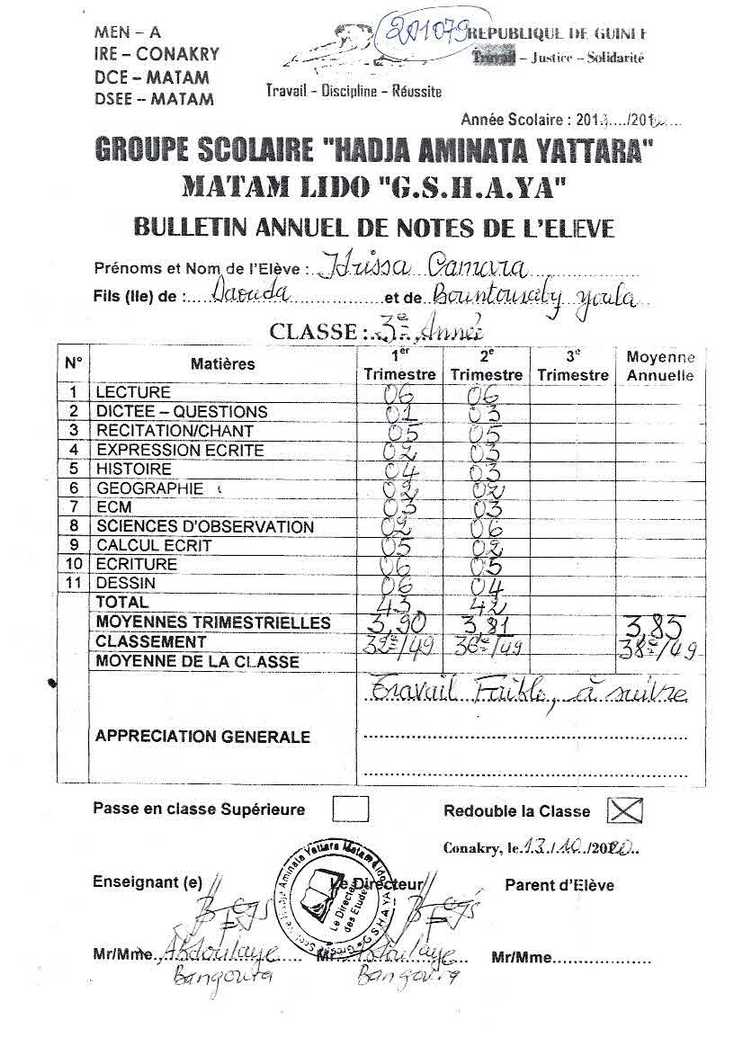 MEN – A
IRE – CONAKRY
DCE – MATAM
DSEE – MATAM
201079
REPUBLIQUE DE GUINEE
Travail – Justice – Solidarité
Travail – Discipline – Réussite
Année Scolaire : 201..../201....
GROUPE SCOLAIRE "HADJA AMINATA YATTARA"
MATAM LIDO "G.S.H.A.YA"
BULLETIN ANNUEL DE NOTES DE L'ELEVE
Prénoms et Nom de l'Elève : Idrissa Camara
Fils (lle) de : Daouda et de Bountouraby Youla
CLASSE : 3e Année
N° Matières 1er Trimestre 2e Trimestre 3e Trimestre Moyenne Annuelle
1 LECTURE 06 06
2 DICTEE – QUESTIONS 01 03
3 RECITATION/CHANT 05 05
4 EXPRESSION ECRITE 02 03
5 HISTOIRE 04 03
6 GEOGRAPHIE 02 02
7 ECM 03
8 SCIENCES D'OBSERVATION 02 06
9 CALCUL ECRIT 05 02
10 ECRITURE 06 05
11 DESSIN 06 04
TOTAL 43 42
MOYENNES TRIMESTRIELLES 3,90 3,81 3,85
CLASSEMENT 32e/49 36e/49 38e/49
MOYENNE DE LA CLASSE
APPRECIATION GENERALE Travail Faible, à suivre
Passe en classe Supérieure Redouble la Classe
Conakry, le 13/10/2020
Enseignant (e) Le Directeur Parent d'Elève
Groupe Scolaire Hadja Aminata Yattara Matam Lido
Le Directeur des Etudes
G.S.H.A.YA
Mr/Mme Abdoulaye Mr Abdoulaye Mr/Mme
Bangoura Bangoura